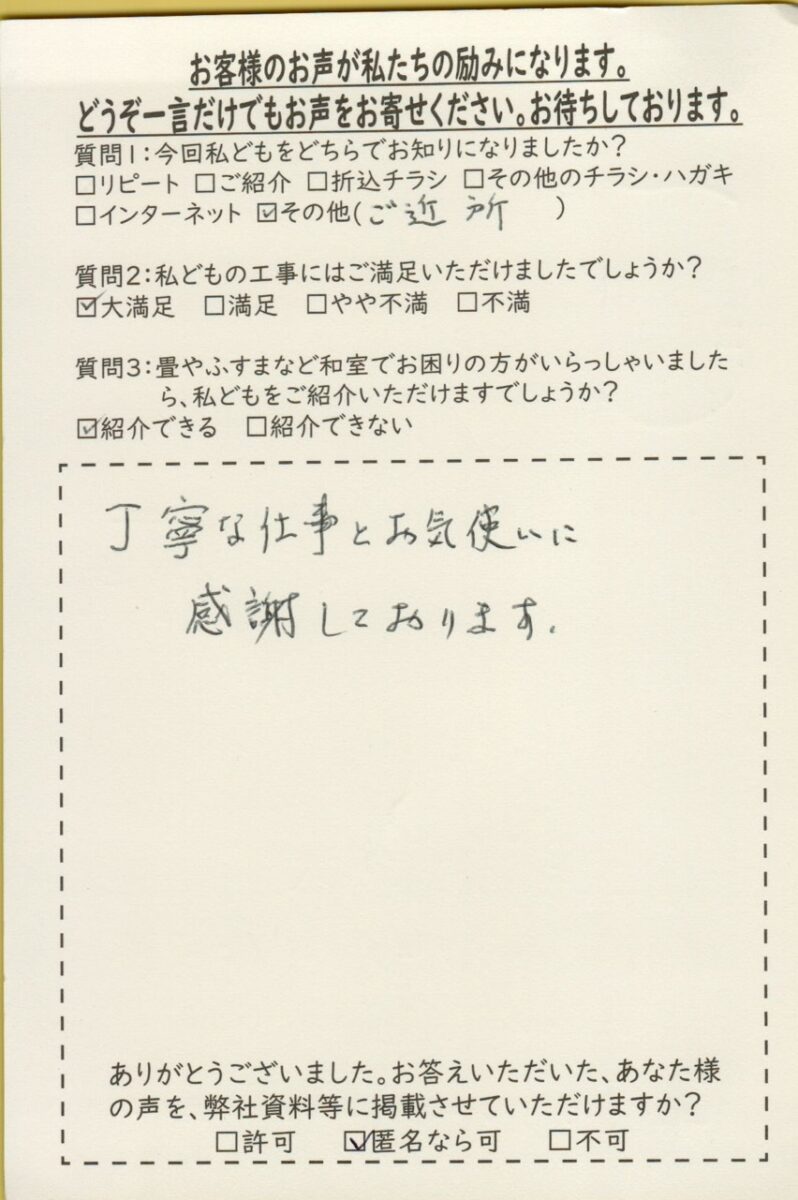 お客様のお声が私たちの励みになります。
どうぞ一言だけでもお声をお寄せください。お待ちしております。
質問1:今回私どもをどちらでお知りになりましたか?
□リピート □ご紹介 □折込チラシ □その他のチラシ・ハガキ
□インターネット ☑その他(ご近所)
質問2:私どもの工事にはご満足いただけましたでしょうか?
☑大満足 □満足 □やや不満 □不満
質問3:畳やふすまなど和室でお困りの方がいらっしゃいました
ら、私どもをご紹介いただけますでしょうか?
☑紹介できる □紹介できない
丁寧な仕事とお気使いに
感謝しております.
ありがとうございました。お答えいただいた、あなた様
の声を、弊社資料等に掲載させていただけますか?
□許可 ☑匿名なら可 □不可